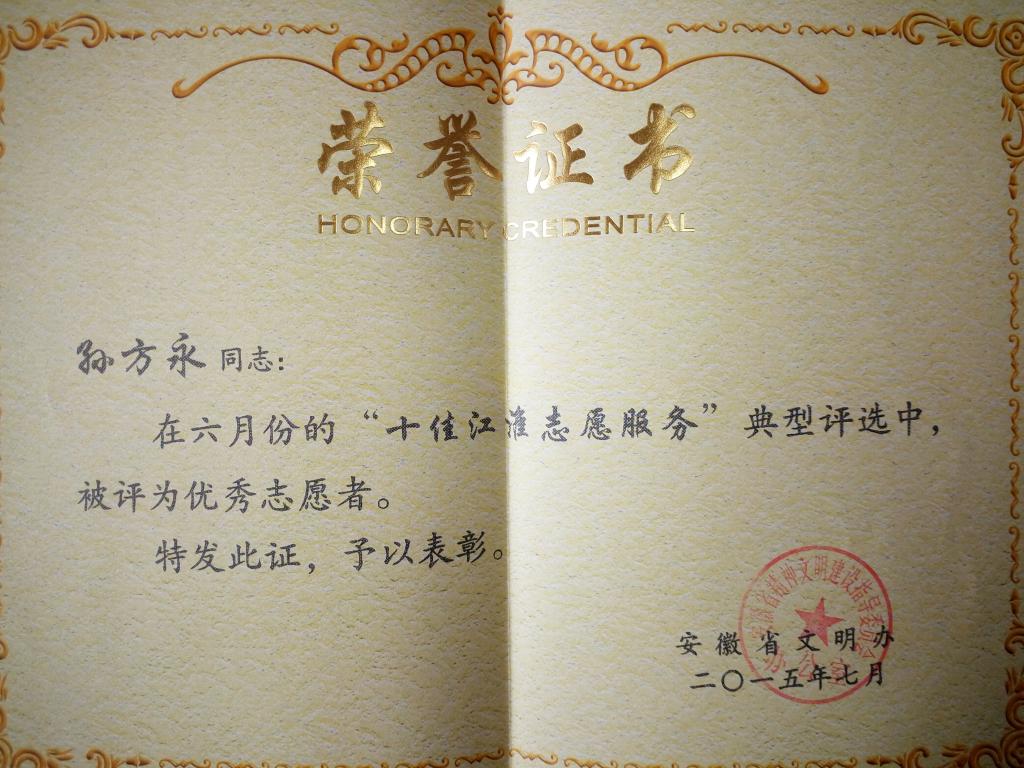 荣誉证书
HONORARY CREDENTIAL
孙方永同志：
在六月份的“十佳江淮志愿服务”典型评选中，
被评为优秀志愿者。
特发此证，予以表彰。
安徽省精神文明建设指导委员会
办公室
安徽省文明办
二〇一五年七月